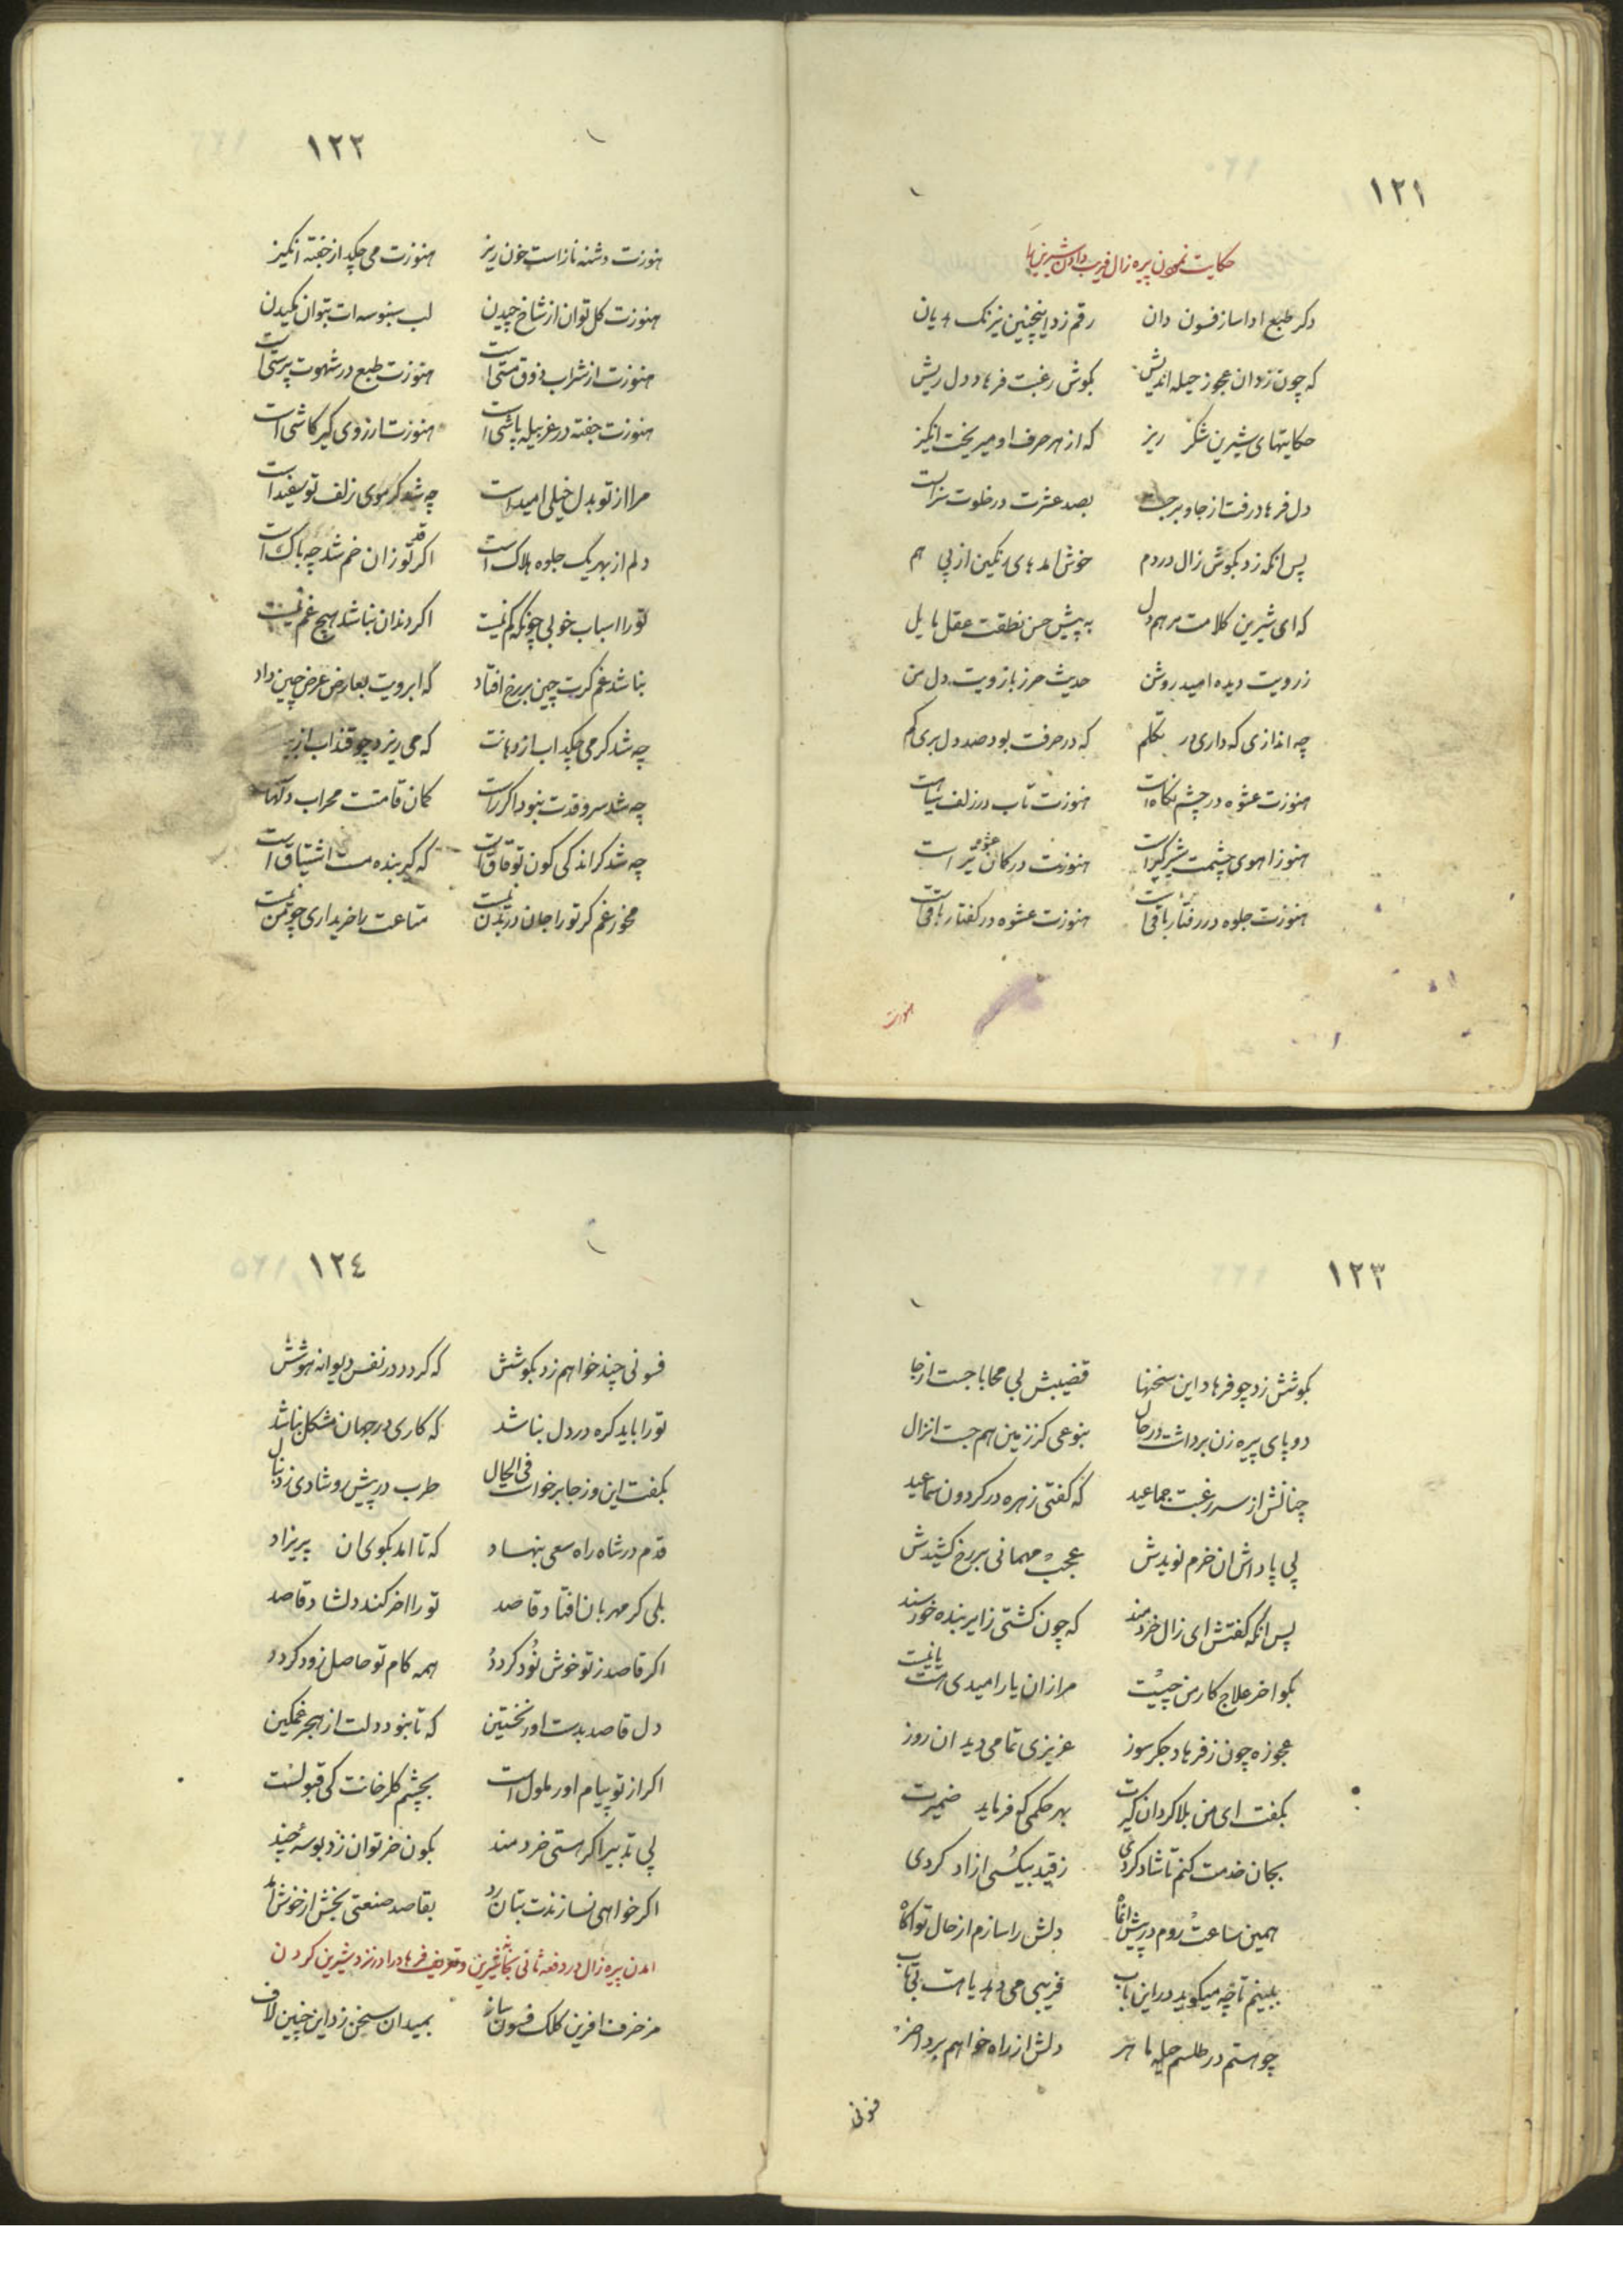 ١٢١
حکایت نمودن پیره زال فریب دادن شیرین را
دکر طبع اداساز فسون دان رقم زد اینچنین نیرنک
که چون زدان عجوز حیله اندیش بکوش رغبت فرهاد دل ریش
حکایتهای شیرین شکر ریز که از هر حرف او میریخت انکیز
دل فرهاد رفت از جا و برجست بصد عشرت در خلوت
پس انکه زد بکوش زال در دم خوش امدهای رنکین از پی هم
که ای شیرین کلامت مرهم دل به پیش حسن نطقت عقل
ز رویت دیده امید روشن حدیث حرز بازویت دل من
چه اندازی که داری در تکلم که در حرفت بود صد دل بری کم
هنوزت عشوه در چشم نکاه است هنوزت تاب در زلف سیاست
هنوز اهوی چشمت شیرکیر است هنوزت در کمان عشوه تیر است
هنوزت جلوه در رفتار باقی است هنوزت عشوه در کفتار باقی است
هنوزت
١٢٢
هنوزت دشنه ناز است خون ریز هنوزت می چکد از جفته انکیز
هنوزت کل توان از شاخ چیدن لب سنبوسه ات بتوان مکیدن
هنوزت از شراب ذوق مستی است هنوزت طبع در شهوت پرستی است
هنوزت جفته در غربیله پاشی است هنوزت ارزوی کیر کاشی است
مرا از تو بدل خیلی امید است چه شد کر موی زلف تو سفید است
دلم از بهر یک جلوه هلاک است اکر قد تو زان خم شد چه باک است
تو را اسباب خوبی چونکه کم نیست اکر دندان نباشد هیچ غم نیست
نباشد غم کرت چین بر رخ افتاد که ابرویت بعارض عرض چین داد
چه شد کر می چکد اب از دهانت که می ریزد چو قند اب از
چه شد سرو قدت نبود اکر راست کمان قامتت محراب دلهاست
چه شد کر اندکی کون تو قاق است که کیر بنده مست اشتیاق است
مخور غم کر تو را جان در بدن نیست متاعت را خریداری چو من نیست
١٢٣
بکوشش زد چو فرهاد این سخنها قضیبش بی محابا جست از جا
دو پای پیره زن برداشت در حال بنوعی کز زمین هم جست انزال
چنانش از سر رغبت جماعید که کفتی زهره در کردون سماعید
پی پاداش ان خرم نویدش عجب مهمانی بر رخ کشیدش
پس انکه کفتش ای زال خردمند که چون کشتی ز ایر بنده خورسند
بکو اخر علاج کار من چیست مرا زان یار امیدی هست یا نیست
عجوزه چون ز فرهاد جکر سوز عزیزی تمامی دید ان روز
بکفت ای من بلا کردان کیرت بهر حکمی که فرماید ضمیرت
بجان خدمت کنم تا شاد کردی ز قید بیکسی ازاد کردی
همین ساعت روم در پیش انماه دلش را سازم از حال تو اکاه
ببینم تا چه میکوید در این باب فریبی می دهد یا هست بی تاب
چو هستم در طلسم حیله ماهر دلش از راه خواهم برد اخر
فسونی
١٢٤
فسونی چند خواهم زد بکوشش که کردد در نفس دیوانه هوشش
تو را باید کره در دل نباشد که کاری در جهان مشکل نباشد
بکفت این و ز جا برخواست فی الحال طرب در پیش رو شادی ز دنبال
قدم در شاه راه سعی بنهاد که تا امد بکوی ان پریزاد
بلی کر مهربان افتاد قاصد تو را اخر کند دلشاد قاصد
اکر قاصد ز تو خوشنود کردد همه کام تو حاصل زود کردد
دل قاصد بدست اور نخستین که تا نبود دلت از هجر غمکین
اکر از تو پیام اور ملول است بچشم کلرخانت کی قبولست
پی تدبیر اکر هستی خردمند بکون خر توان زد بوسه چند
اکر خواهی نسازندت بتان رد بقاصد صنعتی بخش از خوش امد
امدن پیره زال در دفعه ثانی بخانه شیرین و تعریف فرهاد را در نزد شیرین کردن
مزخرف افرین کلک فسون ساز بمیدان سخن زد این چنین لاف